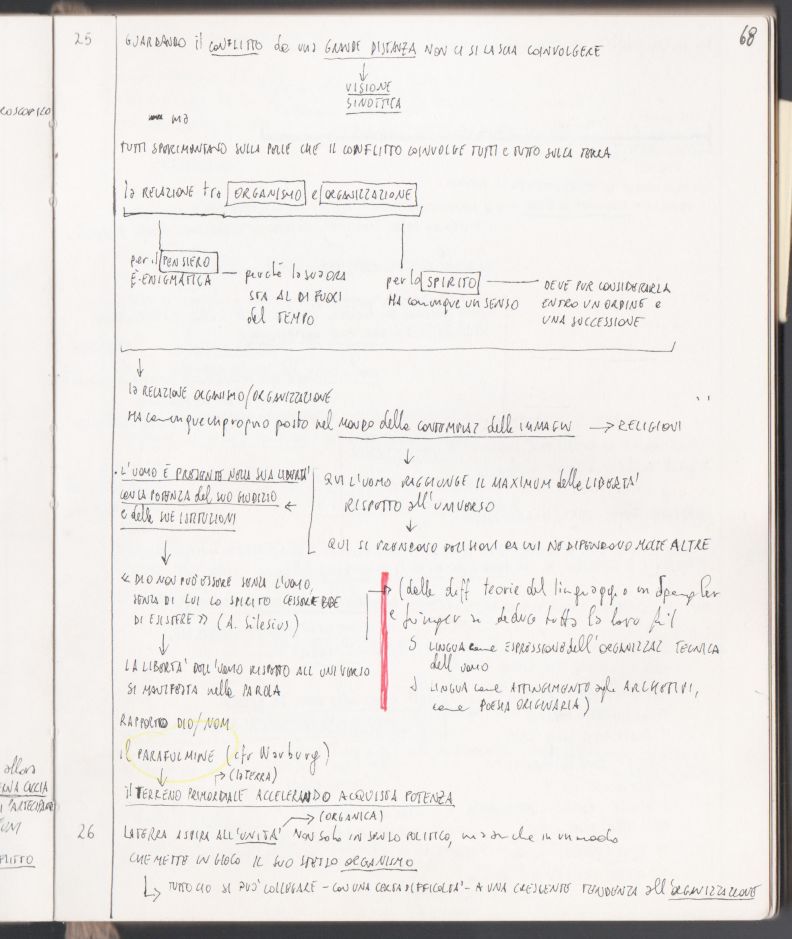 68
25 GUARDANDO il CONFLITTO da una GRANDE DISTANZA NON CI SI LASCIA COINVOLGERE
↓
VISIONE
SINOTTICA
OSCOPICO
ma
TUTTI SPERIMENTANO SULLA PELLE CHE IL CONFLITTO COINVOLGE TUTTI e TUTTO SULLA TERRA
la RELAZIONE tra ORGANISMO e ORGANIZZAZIONE
per il PENSIERO
È ENIGMATICA — perché la sua ORA
STA AL DI FUORI
del TEMPO
per lo SPIRITO — DEVE PUR CONSIDERARLA
HA comunque UN SENSO
ENTRO UN ORDINE e
UNA SUCCESSIONE
↓
la RELAZIONE ORGANISMO/ORGANIZZAZIONE
HA comunque un proprio posto nel MONDO della CONTEMPLAZ delle IMMAGINI → RELIGIONI
↓
QUI L'UOMO RAGGIUNGE IL MAXIMUM della LIBERTÀ
RISPETTO all'UNIVERSO
↓
QUI SI PRENDONO DECISIONI DA CUI NE DIPENDONO MOLTE ALTRE
. L'UOMO È PRESENTE NELLA SUA LIBERTÀ
CON LA POTENZA del SUO GIUDIZIO ←
e delle SUE ISTITUZIONI
↓
« DIO NON PUÒ ESSERE SENZA L'UOMO,
SENZA DI LUI LO SPIRITO CESSEREBBE
DI ESISTERE » (A. Silesius)
↓
LA LIBERTÀ DELL'UOMO RISPETTO ALL'UNIVERSO
SI MANIFESTA nella PAROLA
→ (dalle diff teorie del linguaggio in Spengler
e Jünger si deduce tutta la loro fil
S LINGUA come ESPRESSIONE dell'ORGANIZZAZ TECNICA
dell'uomo
J LINGUA come ATTINGIMENTO agli ARCHETIPI,
come POESIA ORIGINARIA)
RAPPORTO DIO/NOM
il PARAFULMINE (cfr Warburg)
↓ → (la TERRA)
il TERRENO PRIMORDIALE ACCELERANDO ACQUISTA POTENZA
→ (ORGANICA)
26 LA TERRA ASPIRA ALL'UNITÀ NON SOLO IN SENSO POLITICO, ma anche in un modo
CHE METTE IN GIOCO IL SUO STESSO ORGANISMO
↳ TUTTO CIÒ SI PUÒ COLLEGARE - CON UNA CERTA DIFFICOLTÀ - A UNA CRESCENTE TENDENZA all'ORGANIZZAZIONE
CACCIA
FLITTO